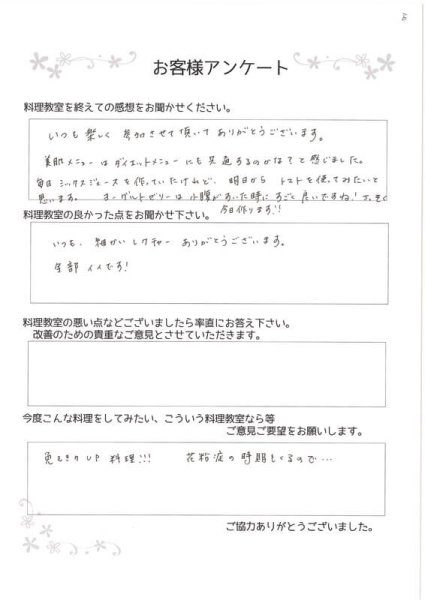 お客様アンケート
料理教室を終えての感想をお聞かせください。
いつも楽しく参加させて頂いてありがとうございます。
美肌メニューはダイエットメニューにも共通するのかな?と感じました。
毎日ミックスジュースを作っていたけれど、明日からトマトを使ってみたいと
思います。 ヨーグルトゼリーは小腹がすいた時にすごく良いですね!
今日作ります!!
料理教室の良かった点をお聞かせ下さい。
いつも、細かいレクチャーありがとうございます。
全部イイです!
料理教室の悪い点などございましたら率直にお答え下さい。
改善のための貴重なご意見とさせていただきます。
今度こんな料理をしてみたい、こういう料理教室なら等
ご意見ご要望をお願いします。
免えきりUP料理!!! 花粉症の時期もくるので…
ご協力ありがとうございました。